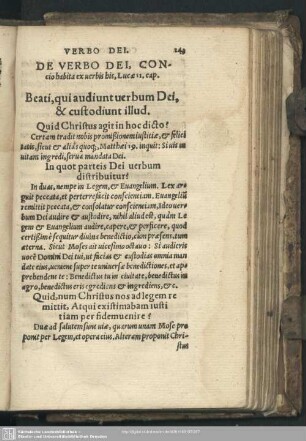 VERBO DEI. 243
DE VERBO DEI, CON-
cio habita ex uerbis his, Lucæ 11. cap.
Beati, qui audiunt uerbum Dei,
& custodiunt illud.
Quid Christus agit in hoc dicto?
Certam tradit nobis promißionem iustitiæ, & felici
tatis, sicut et aliàs quoq;, Matthæi 19. inquit: Si uis in
uitam ingredi, serua mandata Dei.
In quot parteis Dei uerbum
distribuitur?
In duas, nempe in Legem, & Euangelium. Lex ar
guit peccata, et perterrefacit conscientiam. Euangeliũ
remittit peccata, & consolatur conscientiam. Idcirco uer
bum Dei audire & custodire, nihil aliud est, quàm Le
gem & Euangelium audire, capere, & perficere, quod
certißimè sequitur diuina benedictio, cùm præsens, tum
æterna. Sicut Moses ait uicesimo octauo: Si audieris
uocē Domini Dei tui, ut facias & custodias omnia man
data eius, uenient super te uniuersæ benedictiones, et ap
prehendent te: Benedictus tu in ciuitate, benedictus in
agro, benedictus eris egrediens & ingrediens, &c.
Quid, num Christus nos ad legem re
mittit. Atqui existimabam iusti
tiam per fidem uenire?
Duæ ad salutem sunt uiæ, quarum unam Mose pro
ponit per Legem, et opera eius. Alteram proponit Chri-
stus